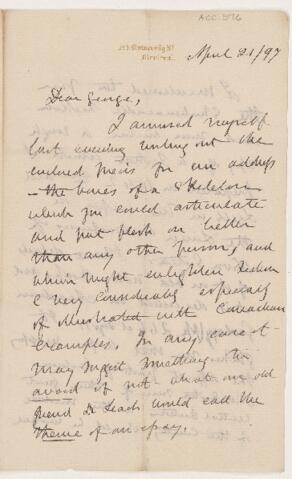 ACC. 576
Montreal.
April 21/97
Dear George,
I amused myself
last evening writing out the
enclosed precis for an address
- the bones of a skeleton
which you could articulate
and put flesh on better
than any other person, and
which might enlighten
& very considerably especially
if illustrated with Canadian
examples. In any case it
may suggest something to
avoid if not what an old
friend Dr Leach would call the
theme of an essay.